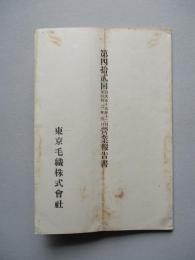 第四拾貳回營業報告書
東京毛織株式會社